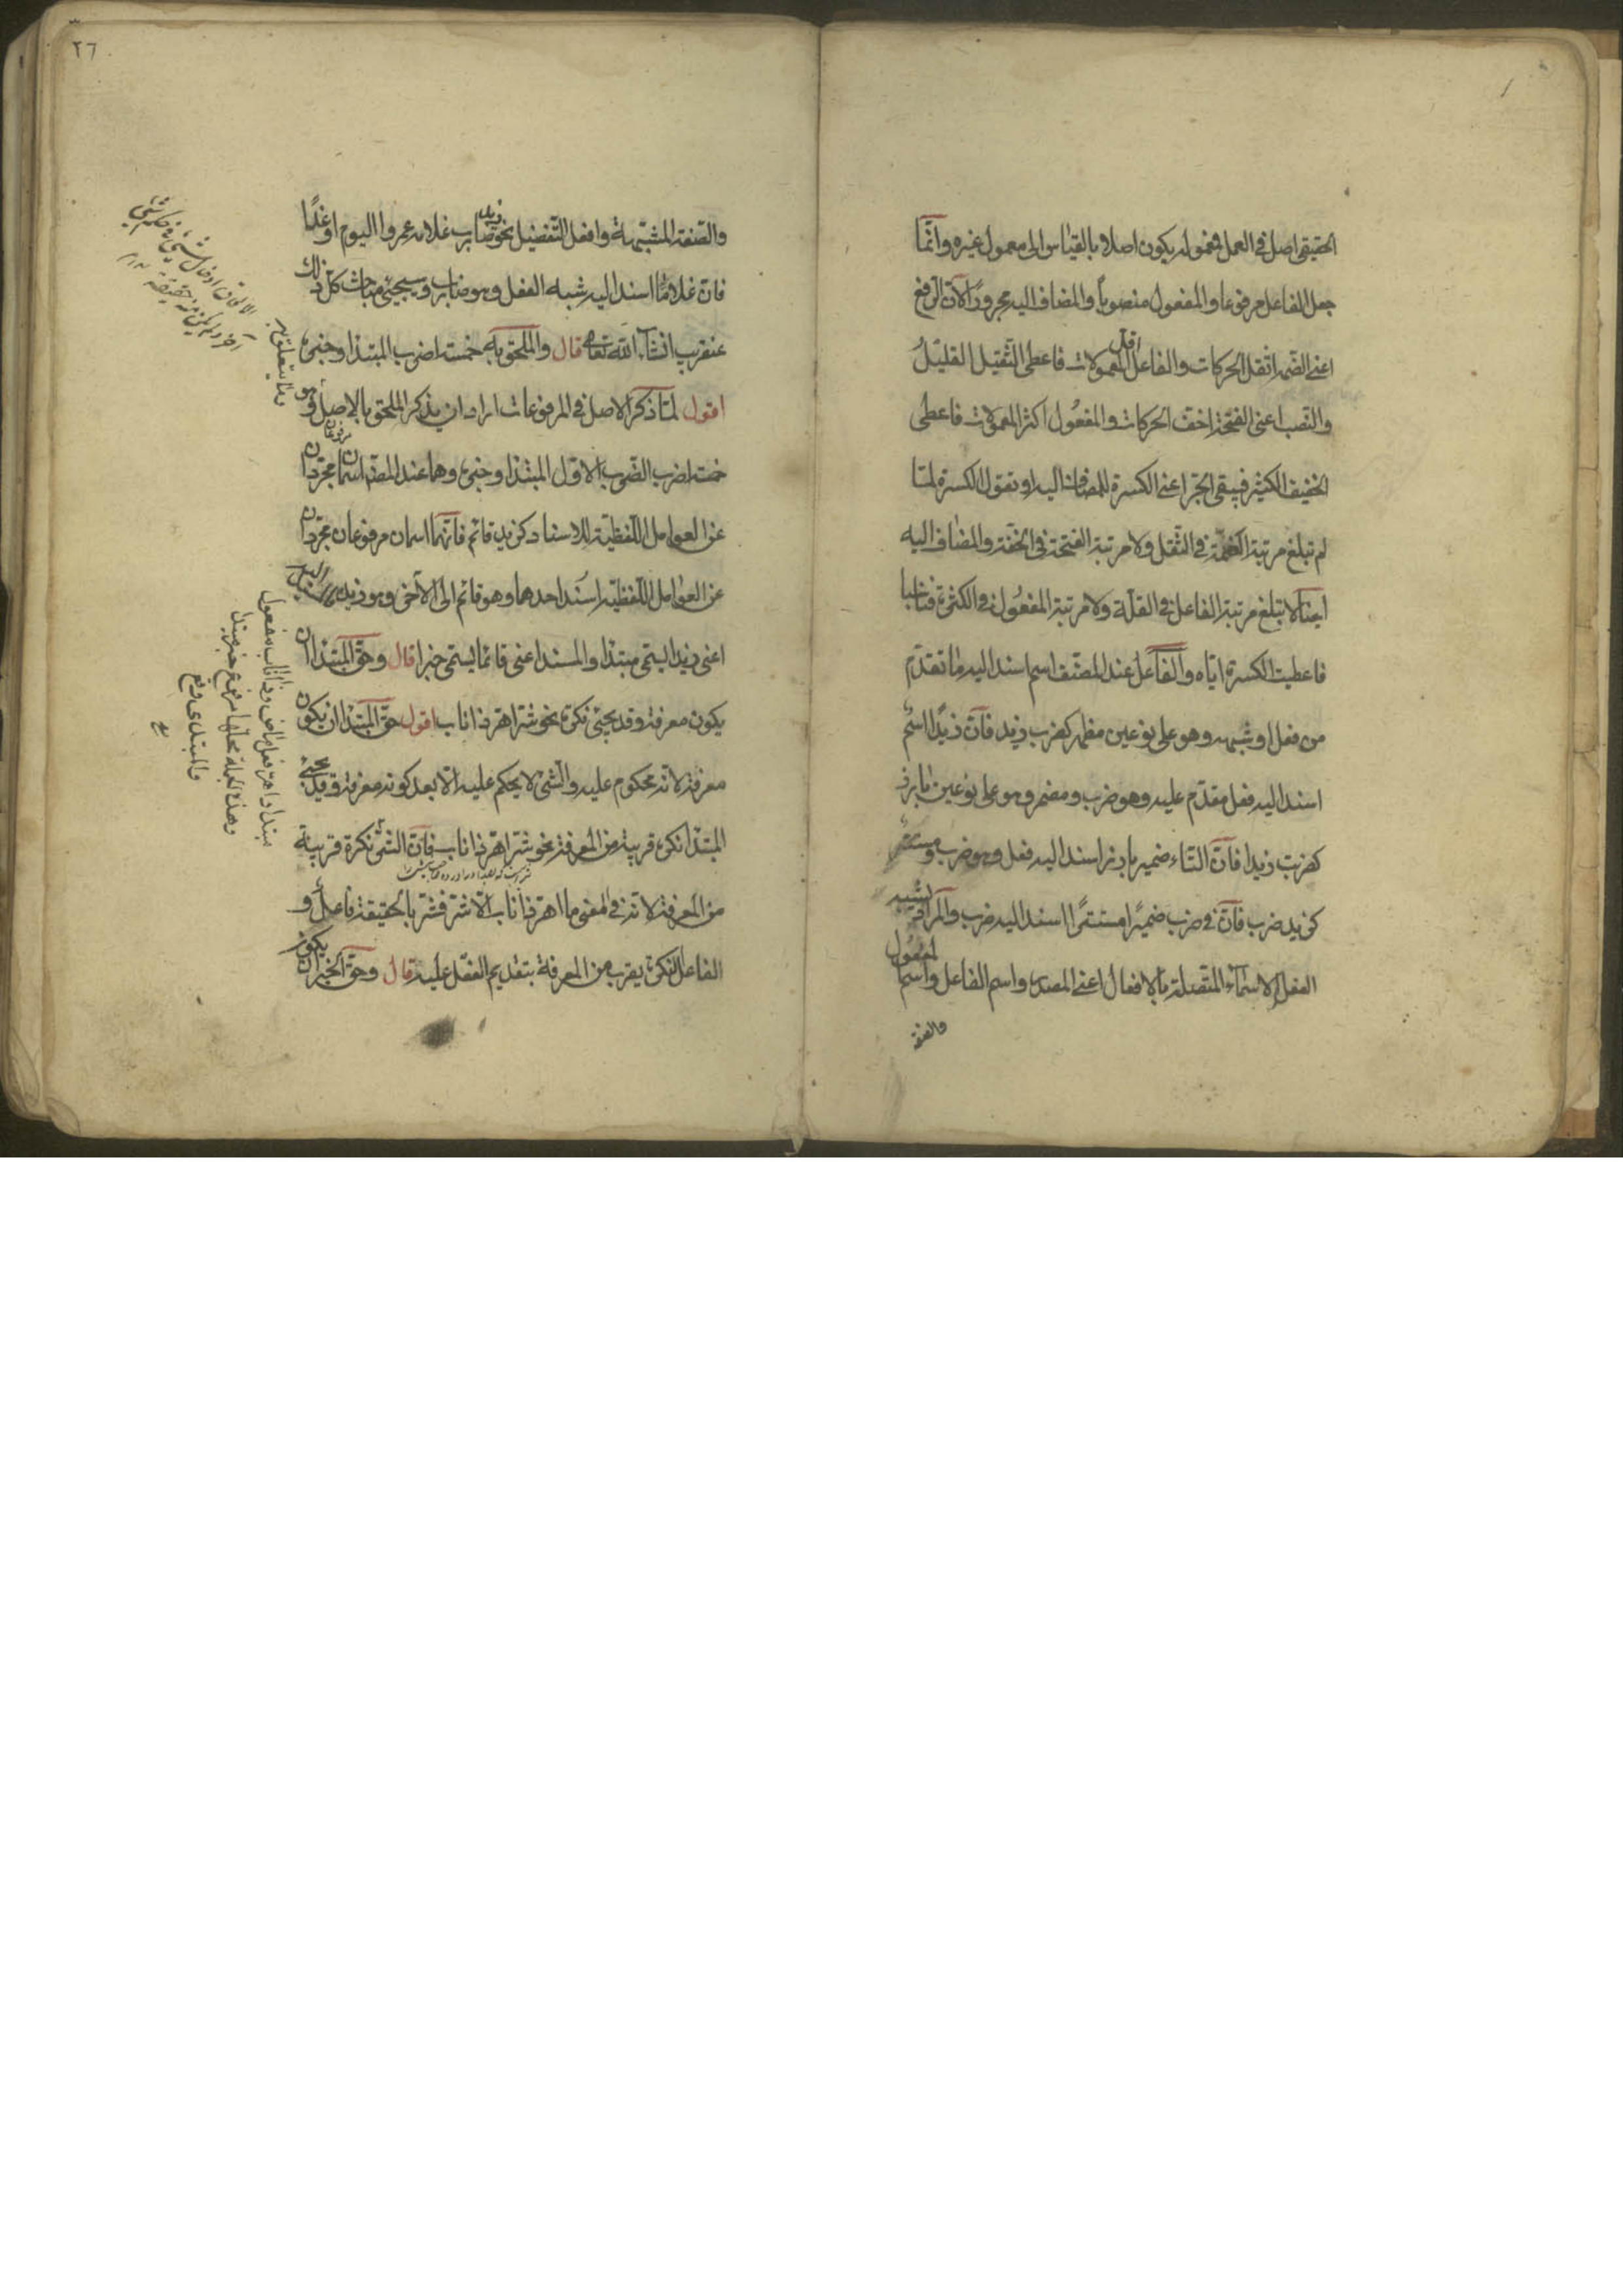 الحقیقی اصل فی العمل فمعموله یکون اصلا بالقیاس الی معمول غیره وانّما
جعل الفاعل مرفوعا والمفعول منصوباً والمضاف الیه مجرورًا لانّ الرفع
اعنی الضمة اثقل الحرکات والفاعل اقل المعمولات فاعطی الثّقیل القلیلُ
والنّصب اعنی الفتحة اخفّ الحرکات والمفعُول اکثر المعمولات فاعطی
الخفیف الکثیر فبقی الجرّ اعنی الکسرة للمضاف الیه او نقول الکسرة لمّا
لم تبلغ مرتبة الضّمّة فی الثّقل ولا مرتبة الفتحة فی الخفّة والمضاف الیه
ایضًا لا تبلغ مرتبة الفاعل فی القلّة ولا مرتبة المفعُول فی الکثرة فتناسبا
فاعطیت الکسرة ایّاه والفاعل عند المصنّف اسم اسند الیه ما تقدّم
من فعل او شبهه وهو علی نوعین مظهر کضرب زید فانّ زیدًا اسمٌ
اسند الیه فعل مقدّم علیه وهو ضرب ومضمر وهو علی نوعین بارز
کضربت زیدا فانّ التّاء ضمیر بارز اسند الیه فعل وهو ضرب ومستتر
کزید ضرب فانّ فی ضرب ضمیرًا مستترًا اسند الیه ضرب والمراد بشبه
الفعل الاسماء المتّصلة بالافعال اعنی المصدر واسم الفاعل واسم المفعُول
والصفة
٢٦
والصّفة المشبّهة وافعل التّفضیل نحو زید ضارب غلامه عمروا الیوم او غدًا
فانّ غلامًا اسند الیه شبه الفعل وهو ضارب وسیجیٔ مباحث کلّ ذلک
عنقریب انشاء اللّه تعالی قال والملحق به خمسة اضرب المبتدا وخبره
اقول لمّا ذکر الاصل فی المرفوعات اراد ان یذکر الملحق بالاصل وهو
خمسة اضرب الضّرب الاوّل المبتدا وخبره وهما عند المصنّف اسمان مرفوعان مجرّدان
عن العوامل اللّفظیّة للاسناد کزید قائم فانّهما اسمان مرفوعان مجرّدان
عن العوامل اللّفظیّة اسند احدهما وهو قائم الی الآخر وهو زید والمسند الیه
اعنی زیدا یسمّی مبتدا والمسند اعنی قائما یسمّی خبرا قال وحقّ المبتدا ان
یکون معرفة وقد یجیٔ نکرة نحو شرّ اهرّ ذا ناب اقول حقّ المبتدا ان یکون
معرفة لانّه محکوم علیه والشّئ لا یحکم علیه الّا بعد کونه معرفة وقد یجیٔ
المبتدا نکرة قریبة من المعرفة نحو شرّ اهرّ ذا ناب فانّ الشّرّ نکرة قریبة
من المعرفة لانّه فی المعنی ما اهرّ ذا ناب الّا شرّ فشرّ بالحقیقة فاعل و
الفاعل النّکرة یقرب من المعرفة بتقدیم الفعل علیه قال وحقّ الخبر ان یکون
مبتدا واهرّ فعل ماض وذا ناب مفعول
وهذه الجملة محلها مرفوع خبر مبتدا